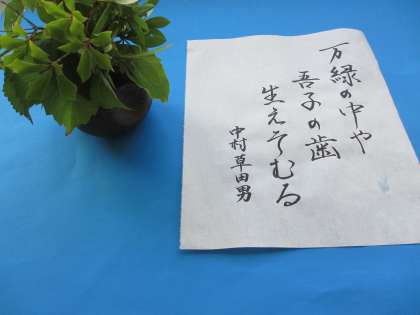 万緑の中や
吾子の歯
生えそむる
中村草田男